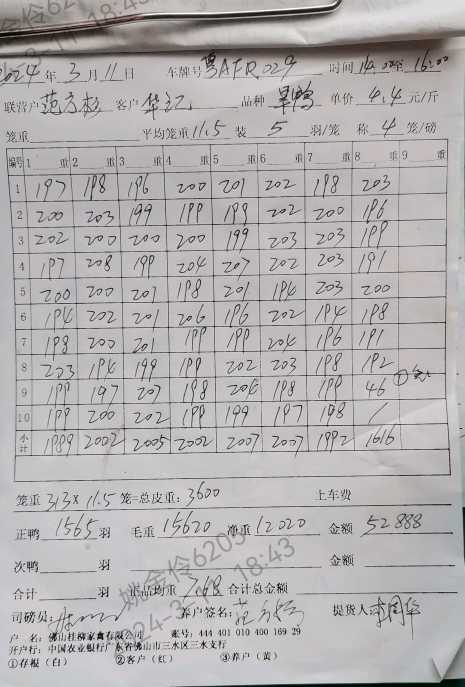 2024 年 3 月 11 日 车牌号 粤AFR029 时间 14:00至 16:00
联营户 范秀杉 客户 华记 品种 旱鸭 单价 4.4 元/斤
笼重 平均笼重 11.5 装 5 羽/笼 称 4 笼/磅
编号 1 重 2 重 3 重 4 重 5 重 6 重 7 重 8 重 9 重
1 197 198 196 200 201 202 198 203
2 200 203 199 199 199 202 200 196
3 202 200 200 200 199 203 203 199
4 197 208 199 204 207 202 203 191
5 200 200 207 198 201 194 203 200
6 194 202 201 206 196 202 194 198
7 198 200 201 199 199 204 196 191
8 203 194 199 199 202 203 198 192
9 199 197 207 198 204 198 199 46
10 199 200 202 199 199 197 198 /
小计 1989 2002 2005 2002 2007 2007 1992 1616
笼重 313 × 11.5 笼=总皮重: 3600 上车费
正鸭 1565 羽 毛重 15620 净重 12020 金额 52888
次鸭 羽 金额
合计 羽 正品均重 7.68 合计总金额
司磅员: 养户签名: 提货人
户 名: 佛山桂柳家禽有限公司 账号: 444 401 010 400 169 29
开户行: 中国农业银行广东省佛山市三水区三水支行
①存根(白) ②客户(红) ③养户(黄)
姚金伶6205
2024-3-11 18:43